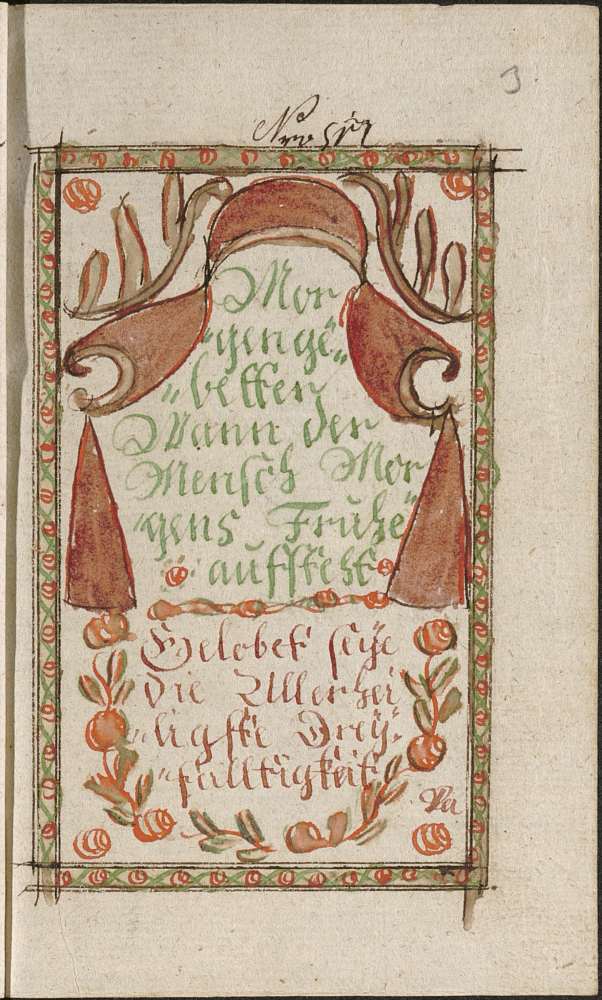 3
Mor
"genge"
"betten
Wann der
Mensch Mor
"gens Fruhe"
aufsteht
Gelobet seÿe
die Allerhei
"ligste Dreÿ"
"falltigkeit
Va